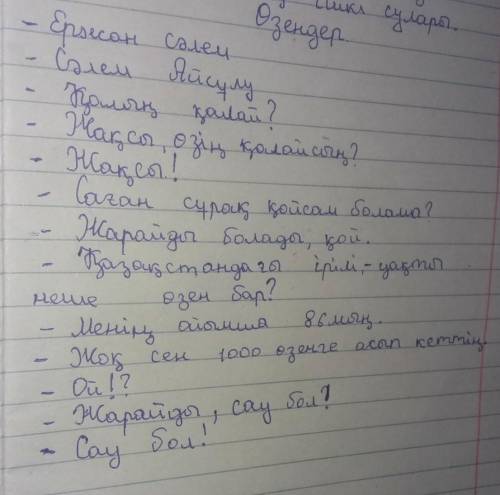 ішкі сулары.
Өзендер
- Ержан сәлем
- Сәлем Айсұлу
- Қалың қалай?
- Жақсы, өзің қалайсың?
- Жақсы!
- Саған сұрақ қойсам болама?
- Жарайды болады, қой.
- Қазақстандағы ірілі,-уақты
неше өзен бар?
- Менің ойымша 86мың.
- Жоқ сен 1000 өзенге асып кеттің.
- Ой!?
- Жарайды, сау бол!
- Сау бол!